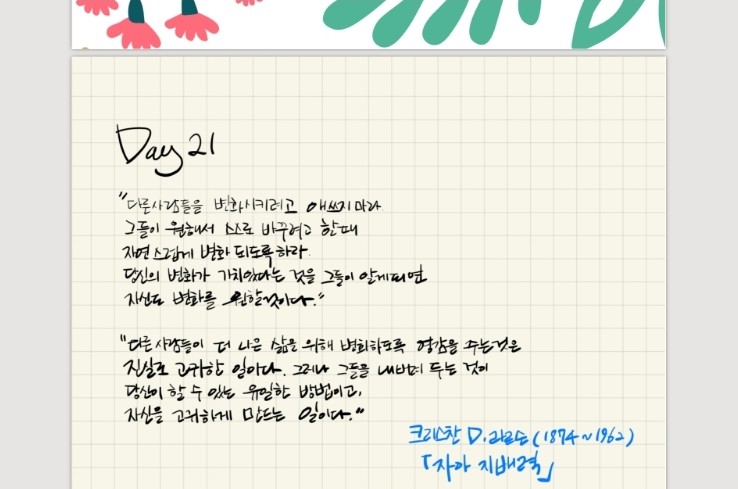 Day 21
"다른사람들을 변화시키려고 애쓰지마라
그들이 원해서 스스로 바꾸려고 할때
자연스럽게 변화 되도록하라
당신의 변화가 가치있다는 것을 그들이 알게되면
자신도 변화를 원할것이다."
"다른 사람들이 더 나은 삶을 위해 변화하도록 영감을 주는것은
진실로 고귀한 일이다. 그러나 그들을 내버려 두는 것이
당신이 할 수 있는 유일한 방법이고,
자신을 고귀하게 만드는 일이다."
크리스찬 D. 라르슨 (1874~1962)
「자아 지배력」